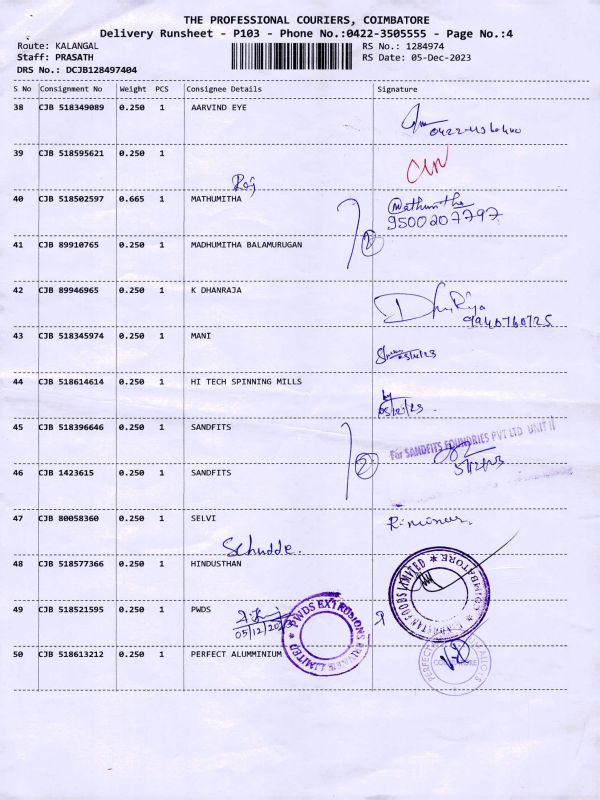 THE PROFESSIONAL COURIERS, COIMBATORE
Delivery Runsheet - P103 - Phone No.:0422-3505555 - Page No.:4
Route: KALANGAL RS No.: 1284974
Staff: PRASATH RS Date: 05-Dec-2023
DRS No.: DCJB128497404
S No Consignment No Weight PCS Consignee Details Signature
38 CJB 518349089 0.250 1 AARVIND EYE
39 CJB 518595621 0.250 1
Raj
40 CJB 518502597 0.665 1 MATHUMITHA Mathumitha
9500207797
41 CJB 89910765 0.250 1 MADHUMITHA BALAMURUGAN
2
42 CJB 89946965 0.250 1 K DHANRAJA
9940760725
43 CJB 518345974 0.250 1 MANI
44 CJB 518614614 0.250 1 HI TECH SPINNING MILLS
05/12/23
45 CJB 518396646 0.250 1 SANDFITS
For SANDFITS FOUNDRIES PVT LTD UNIT II
2 5/12/23
46 CJB 1423615 0.250 1 SANDFITS
47 CJB 80058360 0.250 1 SELVI
48 CJB 518577366 0.250 1 HINDUSTHAN
49 CJB 518521595 0.250 1 PWDS
05/12/2023
PWDS EXTRUSIONS PRIVATE LIMITED
50 CJB 518613212 0.250 1 PERFECT ALUMMINIUM